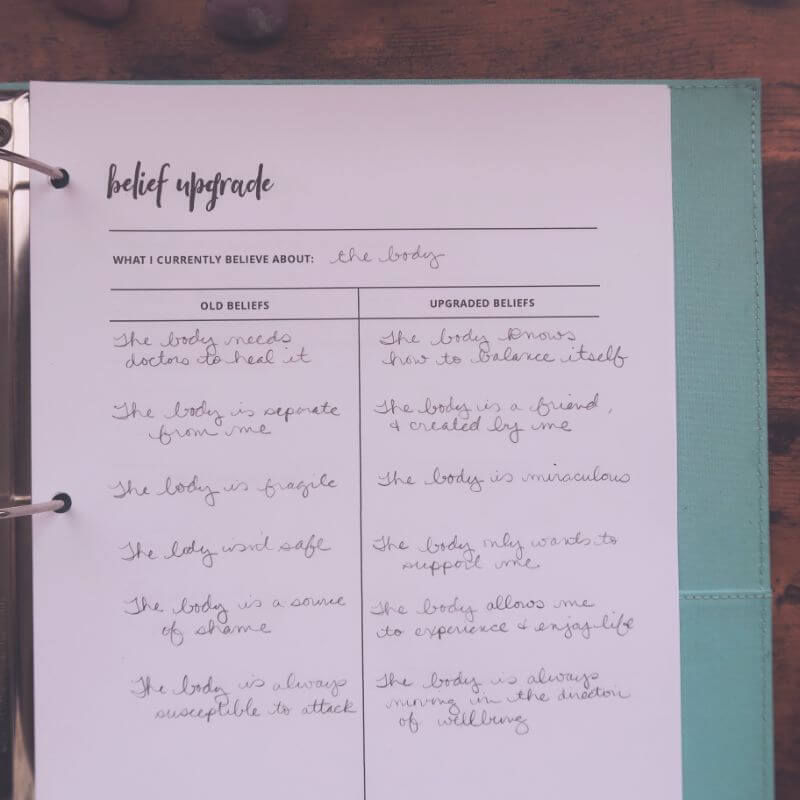 belief upgrade
WHAT I CURRENTLY BELIEVE ABOUT: the body
OLD BELIEFS
UPGRADED BELIEFS
The body needs
doctors to heal it
The body knows
how to balance itself
The body is separate
from me
The body is a friend,
& created by me
The body is fragile
The body is miraculous
The body isn't safe
The body only wants to
support me
The body is a source
of shame
The body allows me
to experience & enjoy life
The body is always
susceptible to attack
The body is always
moving in the direction
of wellbeing